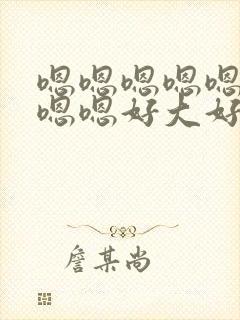 嗯嗯嗯嗯嗯
嗯嗯好大好
詹某尚